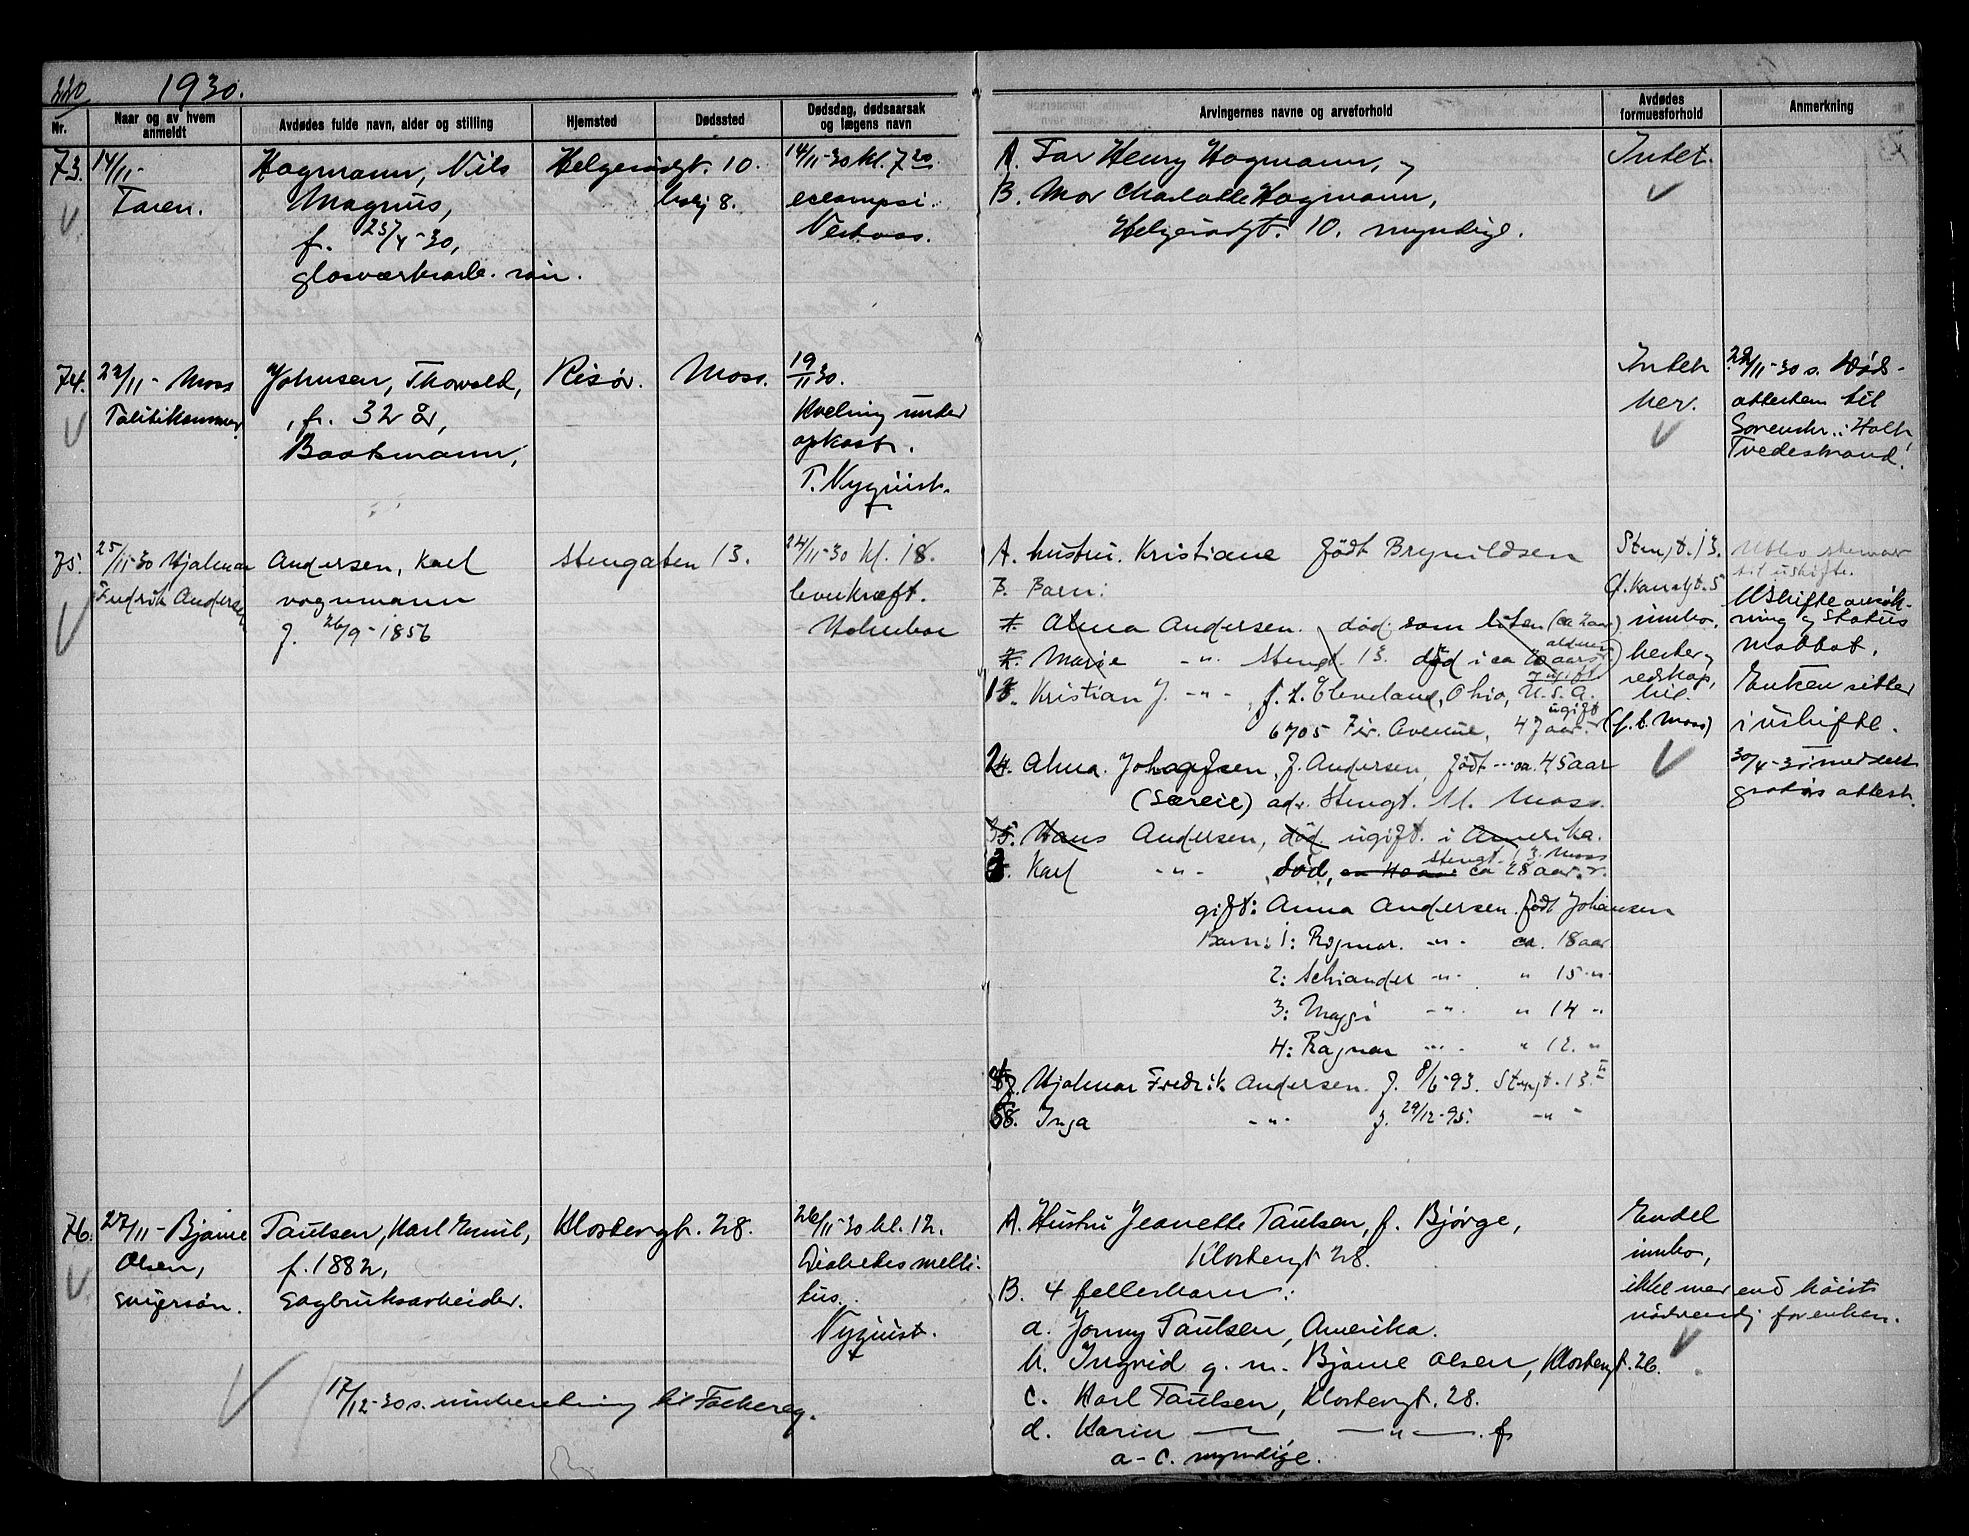 220 1930.
Nr.
Naar og av hvem anmeldt
Avdødes fulde navn, alder og stilling
Hjemsted
Dødssted
Dødsdag, dødsaarsak og lægens navn
Arvingernes navne og arveforhold
Avdødes formuesforhold
Anmerkning
73. 14/11-
Faren.
Hagmann, Nils
Magnus,
f. 23/4-30,
glasværksarb. søn.
Helgerødgt. 10.
14/11-30 kl. 7 20
eclampsi.
A. Far Henry Hagmann, og
B. Mor Charlotte Hagmann,
Helgerødgt. 10. myndige.
Intet.
74. 22/11- Moss
Politikammer
Johnsen, Thorvald,
f. 32 år,
Baatsmann,
Risør. Moss.
19/11 30.
Kvelning under
opkast.
T. Nyquist.
Intet
her.
22/11-30 s. Døds-
attesten til
Sorenskr. i Holt,
Tvedestrand.
75. 25/11-30 Hjalmar
Fredrik Andersen
Andersen, Karl
vognmann
f. 26/9-1856
Stengaten 13.
24/11-30 kl. 18.
leverkræft.
Holmboe
A. hustru. Kristiane født Brynildsen
B. Barn:
1. Alma Andersen. død som liten (ca 2 aar)
2. Marie -"- Stengt. 13. død i ca 20 aars alderen
ugift
13. Kristian J. -"- f. t. Cleveland, Ohio, U.S.A.
6705 Fir. Avenue, 47 aar. ugift
24. Alma. Johansen, f. Andersen, født ... ca. 45 aar
(Særeie) adr. Stengt. 11. Moss.
35. Hans Andersen, død ugift i Amerika.
3. Karl -"- død, Stengt. 13. Moss ca 28 aar.
gift: Anna Andersen født Johansen
Barn: 1: Ragmar. -"- ca. 18 aar
2: Schiander -"- " 15 -"-
3: Maggi -"- " 14 "
4: Ragnar -"- " 12. "
47. Hjalmar Fredrik Andersen. f. 8/6-93. Stengt. 13. II
58. Inga -"- f. 29/12-95. -"-
Stengt. 13.
innbo,
hester og
redskap,
bil.
(f. t. Moss)
til uskifte.
Uskifteansøk-
ning og Status
mottat.
Enken sitter
i uskifte.
gratis attest.
76. 27/11- Bjarne
Olsen,
svigersøn.
Paulsen, Karl Emil,
f. 1882,
Sagbruksarbeider.
Klostergt. 28.
26/11-30 kl. 12.
Diabetes melli-
tus.
Nyquist.
A. Hustru Jeanette Paulsen, f. Bjørge,
Klostergt 28.
B. 4 fellesbarn:
a. Jonny Paulsen, Amerika.
b. Ingrid g. m. Bjarne Olsen, Klostergt. 26.
c. Karl Paulsen, Klostergt. 28.
d. Karin — — " —
a-c. myndige.
Endel
innbo,
ikke mer end høist
nødvendig for enken.
17/12-30 s. underretning til